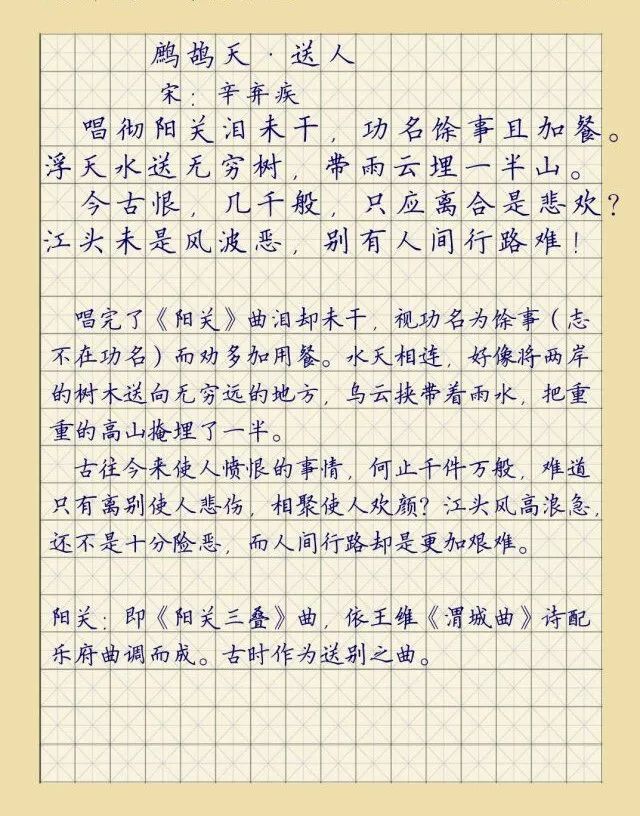 鹧鸪天·送人
宋：辛弃疾
唱彻阳关泪未干，功名馀事且加餐。
浮天水送无穷树，带雨云埋一半山。
今古恨，几千般，只应离合是悲欢？
江头未是风波恶，别有人间行路难！
唱完了《阳关》曲泪却未干，视功名为馀事（志
不在功名）而劝多加用餐。水天相连，好像将两岸
的树木送向无穷远的地方，乌云挟带着雨水，把重
重的高山掩埋了一半。
古往今来使人愤恨的事情，何止千件万般，难道
只有离别使人悲伤，相聚使人欢颜？江头风高浪急，
还不是十分险恶，而人间行路却是更加艰难。
阳关：即《阳关三叠》曲，依王维《渭城曲》诗配
乐府曲调而成。古时作为送别之曲。